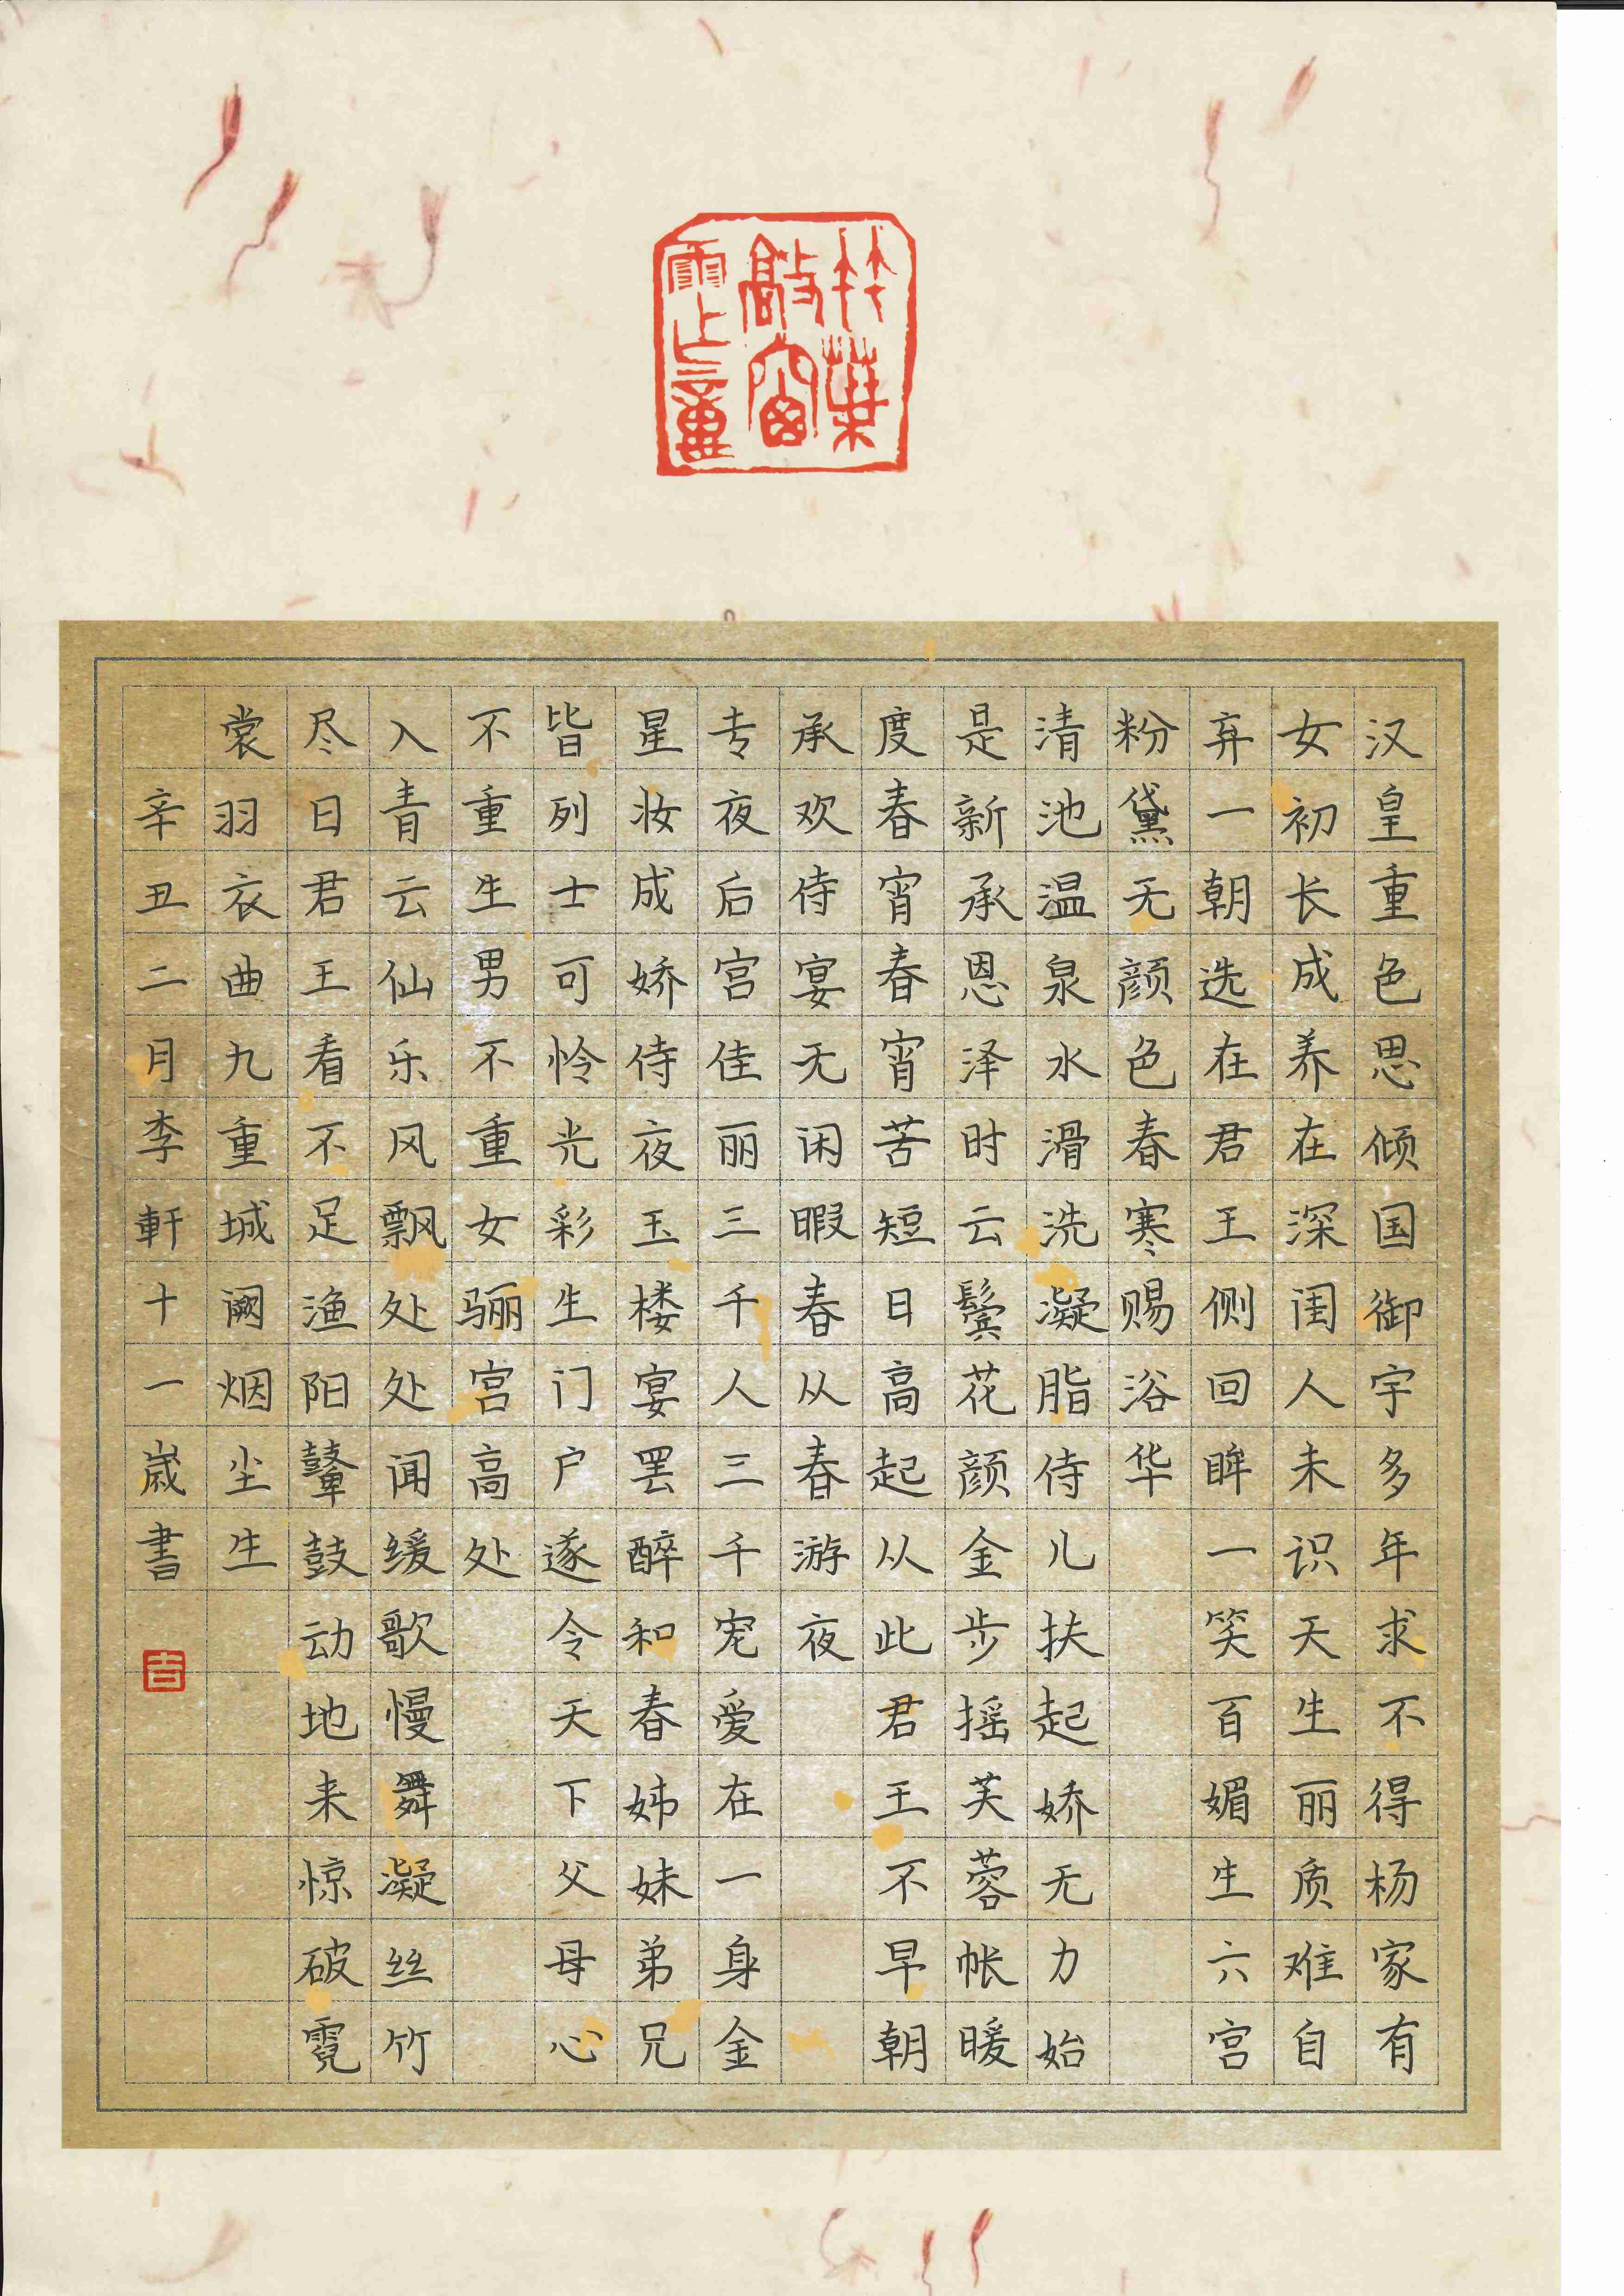 竹葉
敲窗
汉皇重色思倾国御宇多年求不得杨家有
女初长成养在深闺人未识天生丽质难自
弃一朝选在君王侧回眸一笑百媚生六宫
粉黛无颜色春寒赐浴华
清池温泉水滑洗凝脂侍儿扶起娇无力始
是新承恩泽时云鬓花颜金步摇芙蓉帐暖
度春宵春宵苦短日高起从此君王不早朝
承欢侍宴无闲暇春从春游夜
专夜后宫佳丽三千人三千宠爱在一身金
星妆成娇侍夜玉楼宴罢醉和春姊妹弟兄
皆列士可怜光彩生门户遂令天下父母心
不重生男不重女骊宫高处
入青云仙乐风飘处处闻缓歌慢舞凝丝竹
尽日君王看不足渔阳鼙鼓动地来惊破霓
裳羽衣曲九重城阙烟尘生
辛丑二月李軒十一歳書
吉